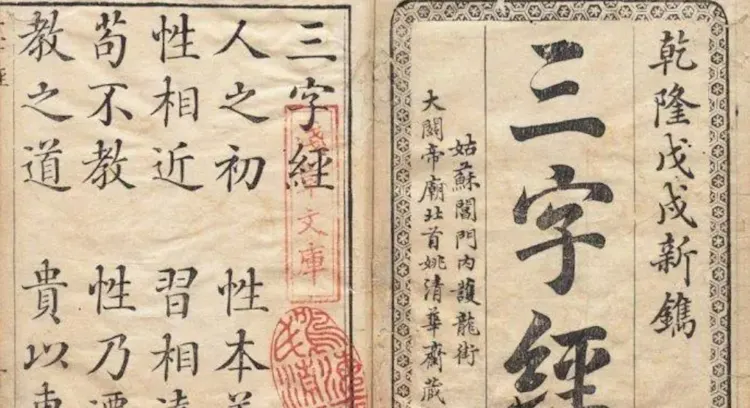 乾隆戊戌新鐫
三字經
姑蘇閶門內護龍街
大關帝廟北首姚清華齋藏
三字經
淺草文庫
人之初 性本善
性相近 習相遠
苟不教 性乃遷
教之道 貴以專